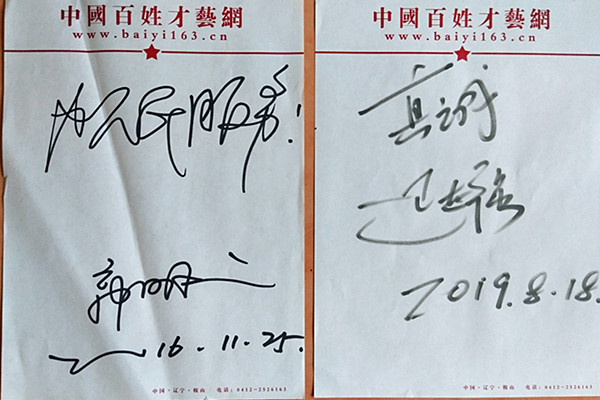 中國百姓才藝網
www.baiyi163.cn
为人民服务!
郭明义
2016.11.25.
中国·辽宁·鞍山 电话:0412-2526163
中國百姓才藝網
www.baiyi163.cn
真诚
迟志强
2019.8.18.
中国·辽宁·鞍山 电话:0412-2526163